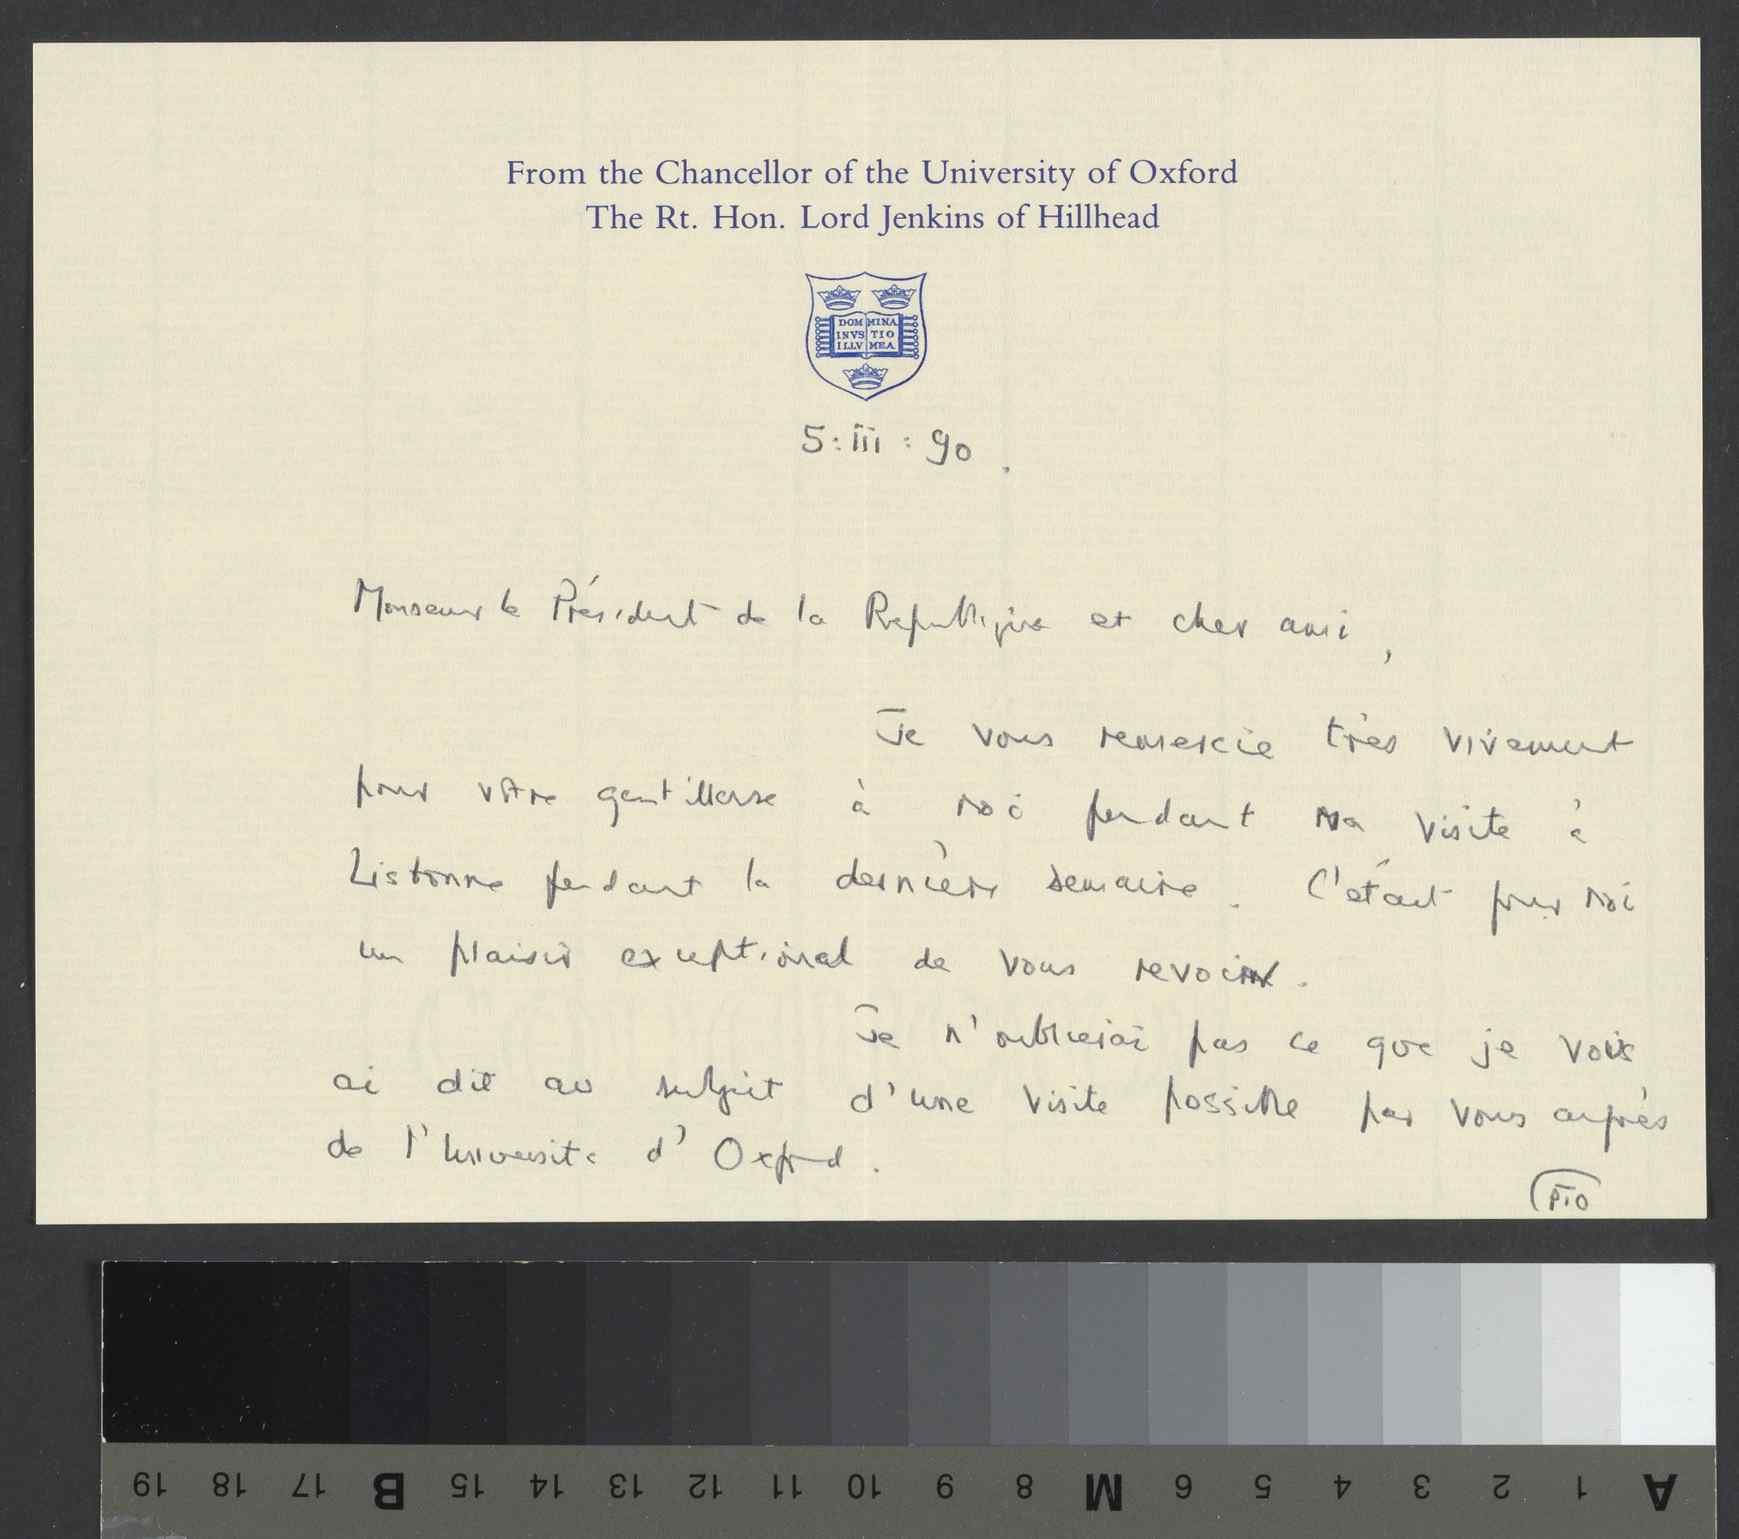 From the Chancellor of the University of Oxford
The Rt. Hon. Lord Jenkins of Hillhead
DOMINVS ILLV MINATIO MEA
5:iii:90.
Monsieur le Président de la Republique et cher ami,
Je vous remercie très vivement
pour votre gentillesse à moi pendant ma visite à
Lisbonne pendant la dernière semaine. C'était pour moi
un plaisir exceptional de vous revoir.
Je n'oublierai pas ce que je vous
ai dit au subjet d'une visite possible par vous auprès
de l'Université d'Oxford.
PTO
19 18 17 B 15 14 13 12 11 10 9 8 M 6 5 4 3 2 1 A